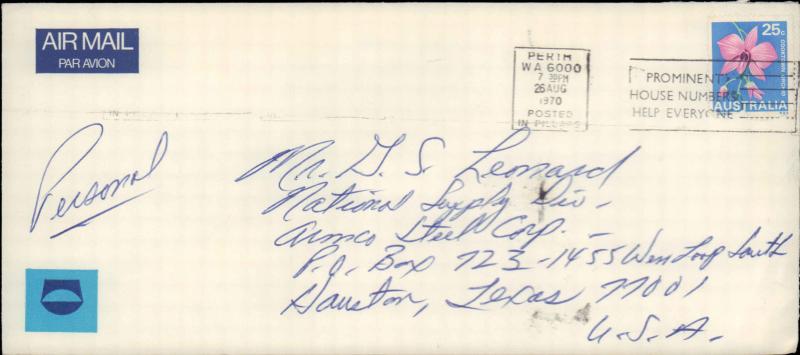 AIR MAIL
PAR AVION
PERTH
WA 6000
7 30PM
26 AUG
1970
POSTED
IN PILLARS
PROMINENT
HOUSE NUMBERS
HELP EVERYONE
25c
COOKTOWN ORCHID
AUSTRALIA
Personal
Mr. G. S. Leonard
National Supply Div.
Armco Steel Corp. -
P.O. Box 723-1455 Wes Loop South
Houston, Texas 77001
U.S.A.